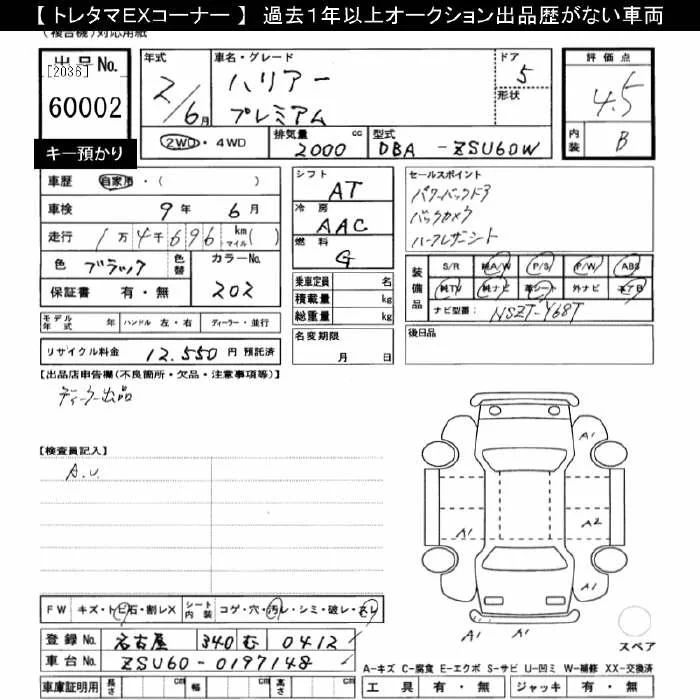 【トレタマEXコーナー】 過去1年以上オークション出品歴がない車両
(複合機)対応用紙
出品No.
[2036]
60002
キー預かり
年式
2/6月
車名・グレード
ハリアー
プレミアム
ドア
5
形状
評価点
4.5
内装 B
2WD・4WD
排気量 cc
2000
型式
DBA - ZSU60W
車歴 自家用・( )
車検 9年 6月
走行 1万4千696 km マイル( )
色 ブラック 色替
カラーNo.
202
保証書 有・無
シフト
AT
冷房
AAC
燃料
G
乗車定員 名
積載量 kg
総重量 kg
セールスポイント
パワーバックドア
バックカメラ
ハーフレザーシート
装備品
S/R 純A/W P/S P/W ABS
純TV 純ナビ 革シート 外ナビ エアB
ナビ型番: NSZT-Y68T
モデル年式 年 ハンドル 左・右 ディーラー・並行
リサイクル料金 12,550 円 預託済
名変期限
月 日
後日品
【出品店申告欄(不良箇所・欠品・注意事項等)】
ディーラー出品
【検査員記入】
A.U.
A1
A1
A2
A1
FW キズ・トビ石・割レX シート内装 コゲ・穴・汚レ・シミ・破レ・スレ
登録No. 名古屋 340 む 0412
車台No. ZSU60-0197148
車庫証明用 長さ cm 幅 cm 高さ cm
スペア
A-キズ C-腐食 E-エクボ S-サビ U-凹ミ W-補修 XX-交換済
工具 有・無 ジャッキ 有・無